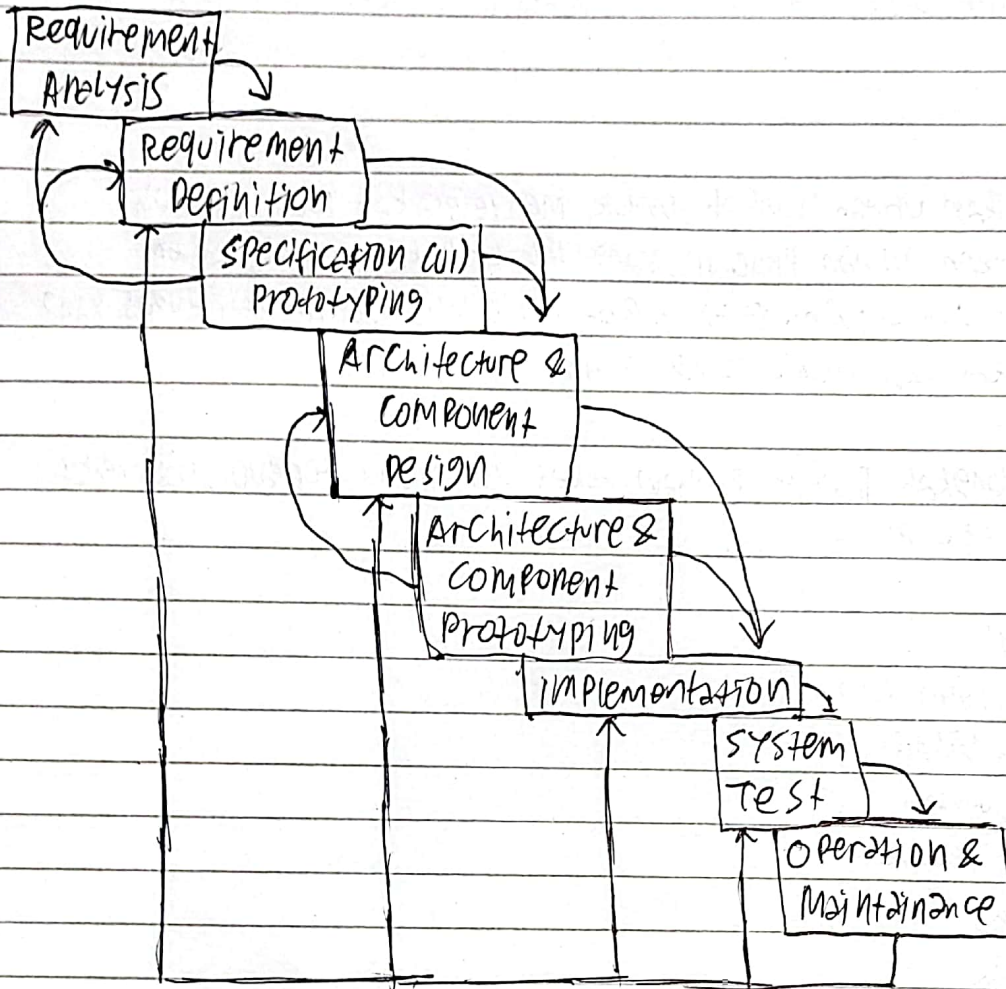 Requirement
Analysis
Requirement
Definition
Specification (UI)
Prototyping
Architecture &
Component
Design
Architecture &
Component
Prototyping
Implementation
System
Test
Operation &
Maintainance